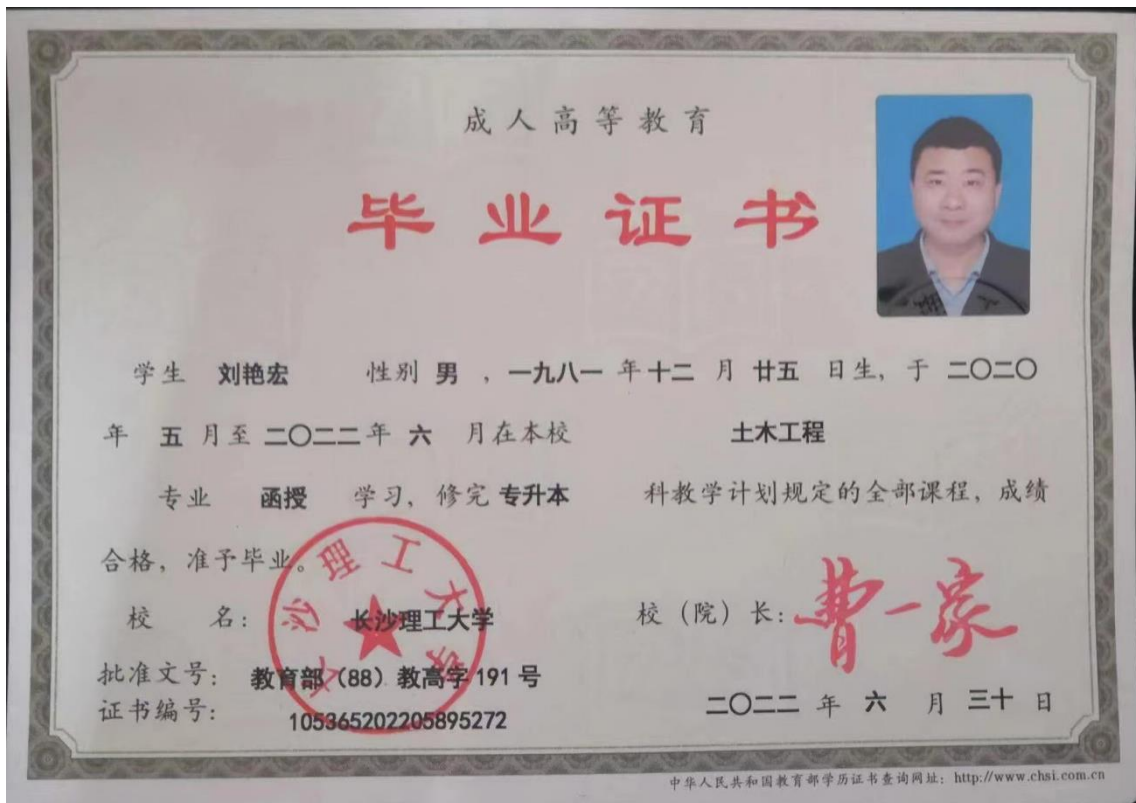 成人高等教育
毕业证书
学生 刘艳宏 性别 男 ，一九八一 年 十二 月 廿五 日生，于 二〇二〇
年 五 月至 二〇二二 年 六 月在本校 土木工程
专业 函授 学习，修完 专升本 科教学计划规定的全部课程，成绩
合格，准予毕业。
校 名： 长沙理工大学
校（院）长：曹一家
批准文号： 教育部（88）教高字 191 号
证书编号： 105365202205895272
二〇二二 年 六 月 三十 日
长沙理工大学
中华人民共和国教育部学历证书查询网址：http://www.chsi.com.cn